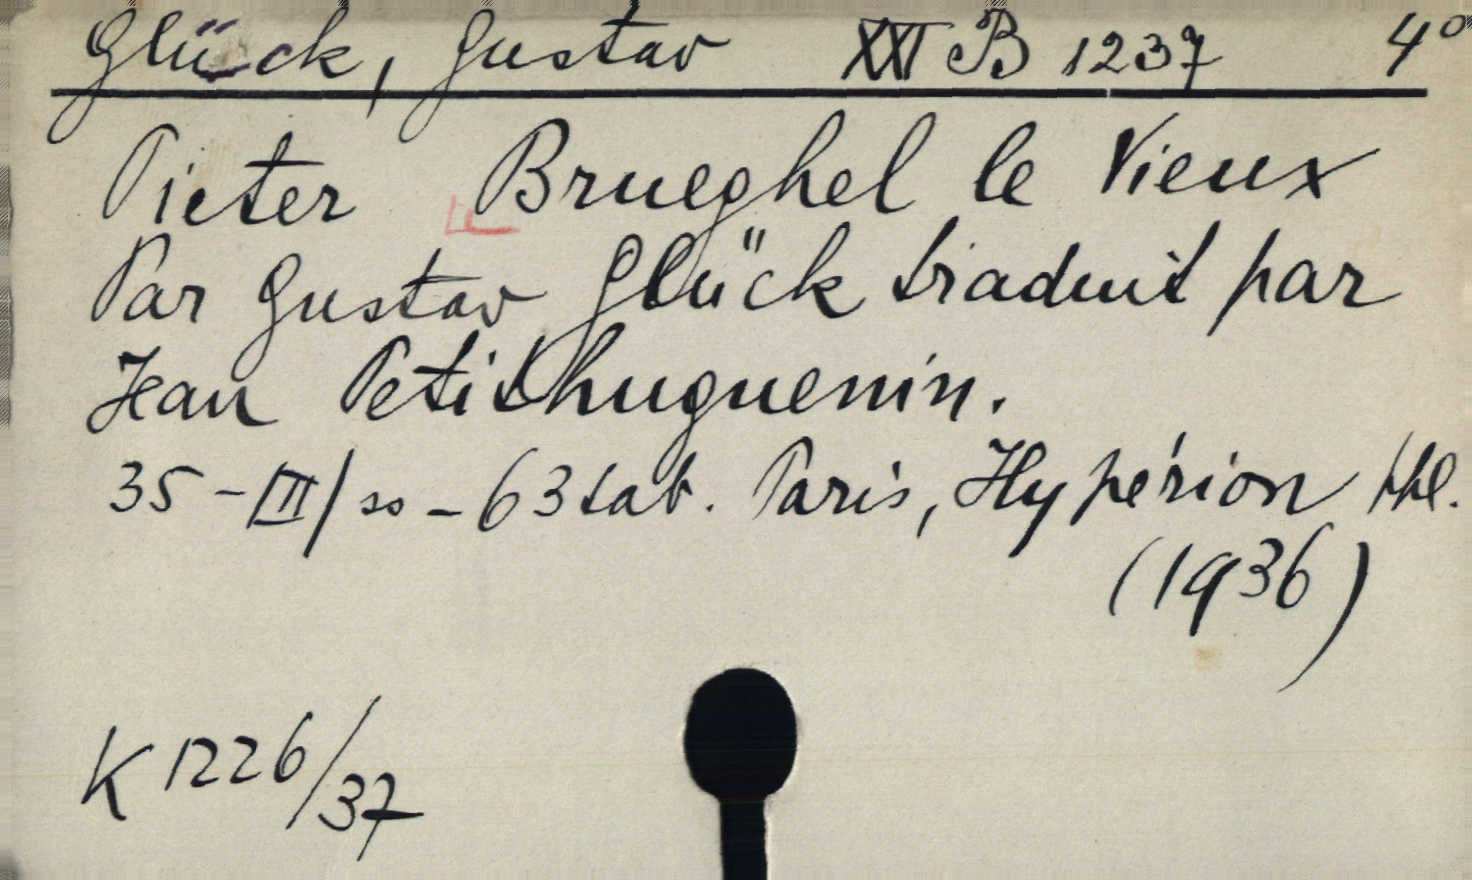 Glück, Gustav XXI B 1237 4°
Pieter Brueghel le Vieux
Par Gustav Glück traduit par
Jean Petithuguenin.
35 - III / so - 63 tab. Paris, Hypérion
(1936)
K 1226/37